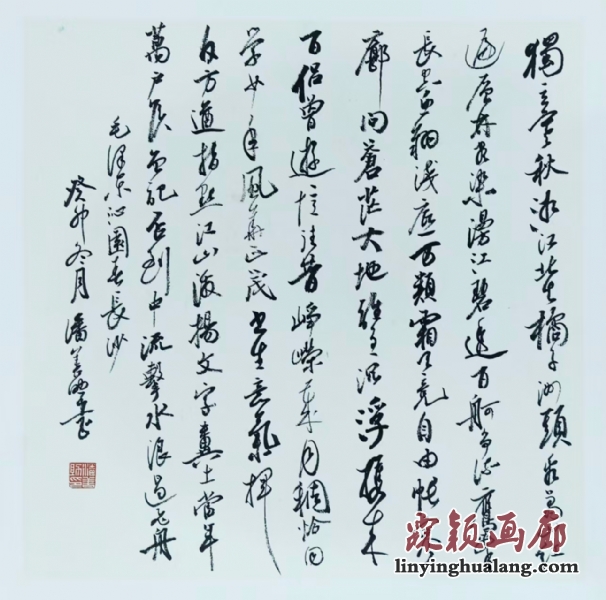 獨立寒秋湘江北去橘子洲頭看萬山紅
遍層林盡染漫江碧透百舸爭流鷹擊
長空魚翔淺底萬類霜天競自由悵寥
廓問蒼茫大地誰主沉浮攜來
百侣曾遊憶往昔崢嶸歲月稠恰同
学少年風華正茂書生意氣揮
斥方遒指點江山激揚文字糞土當年
萬户侯曾記否到中流擊水浪遏飛舟
毛澤东沁園春長沙
癸卯冬月潘 書
霖颖画廊
linyinghualang.com